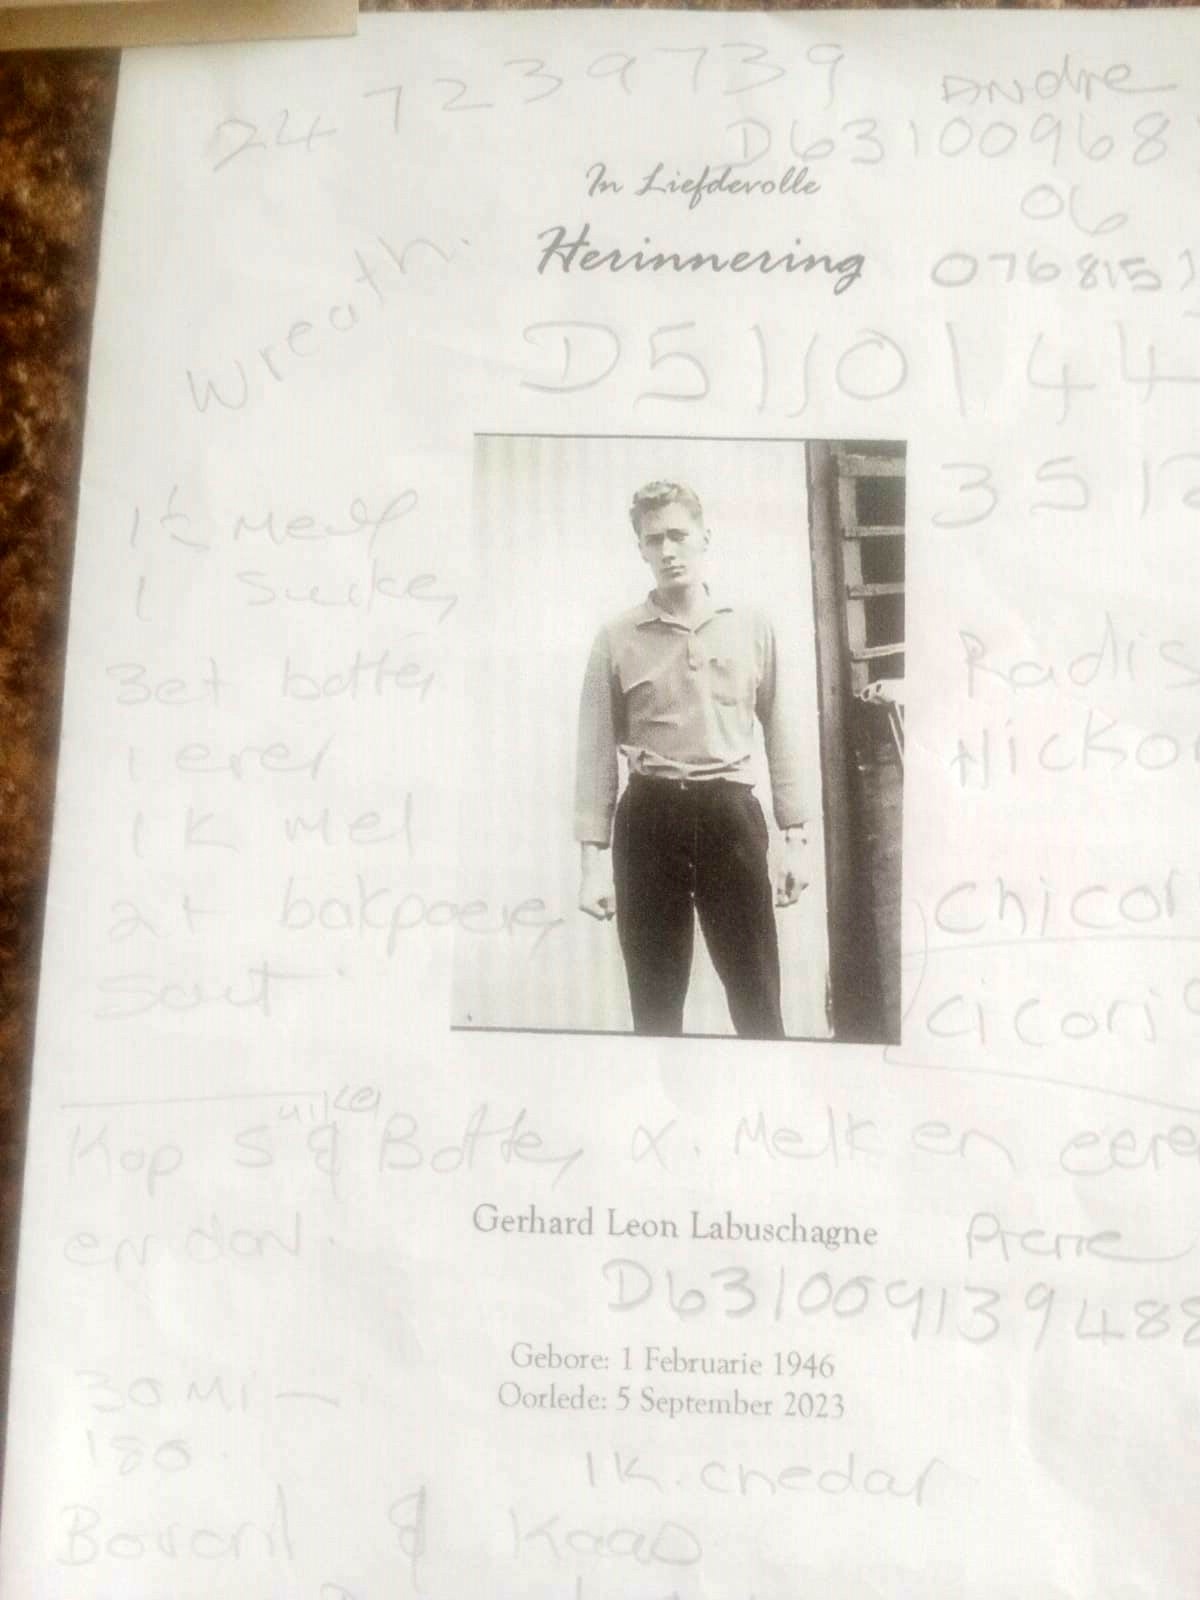 24 7239739
Andre
D63100968
06
In Liefdevolle
Herinnering
0768152
Wreath.
D5110144
351
Meel
1 Suiker
3et botter
1 eier
1 k Mel
2t bakpoeier
Sout
Radis
Hickor
Chicor
Cicori
uiker
Kop S & Botter Melk en eere
en dan.
Gerhard Leon Labuschagne
Pierre
D63100913948
Gebore: 1 Februarie 1946
Oorlede: 5 September 2023
30 Mi —
180.
1 K. chedar
Bovoril & Kaas